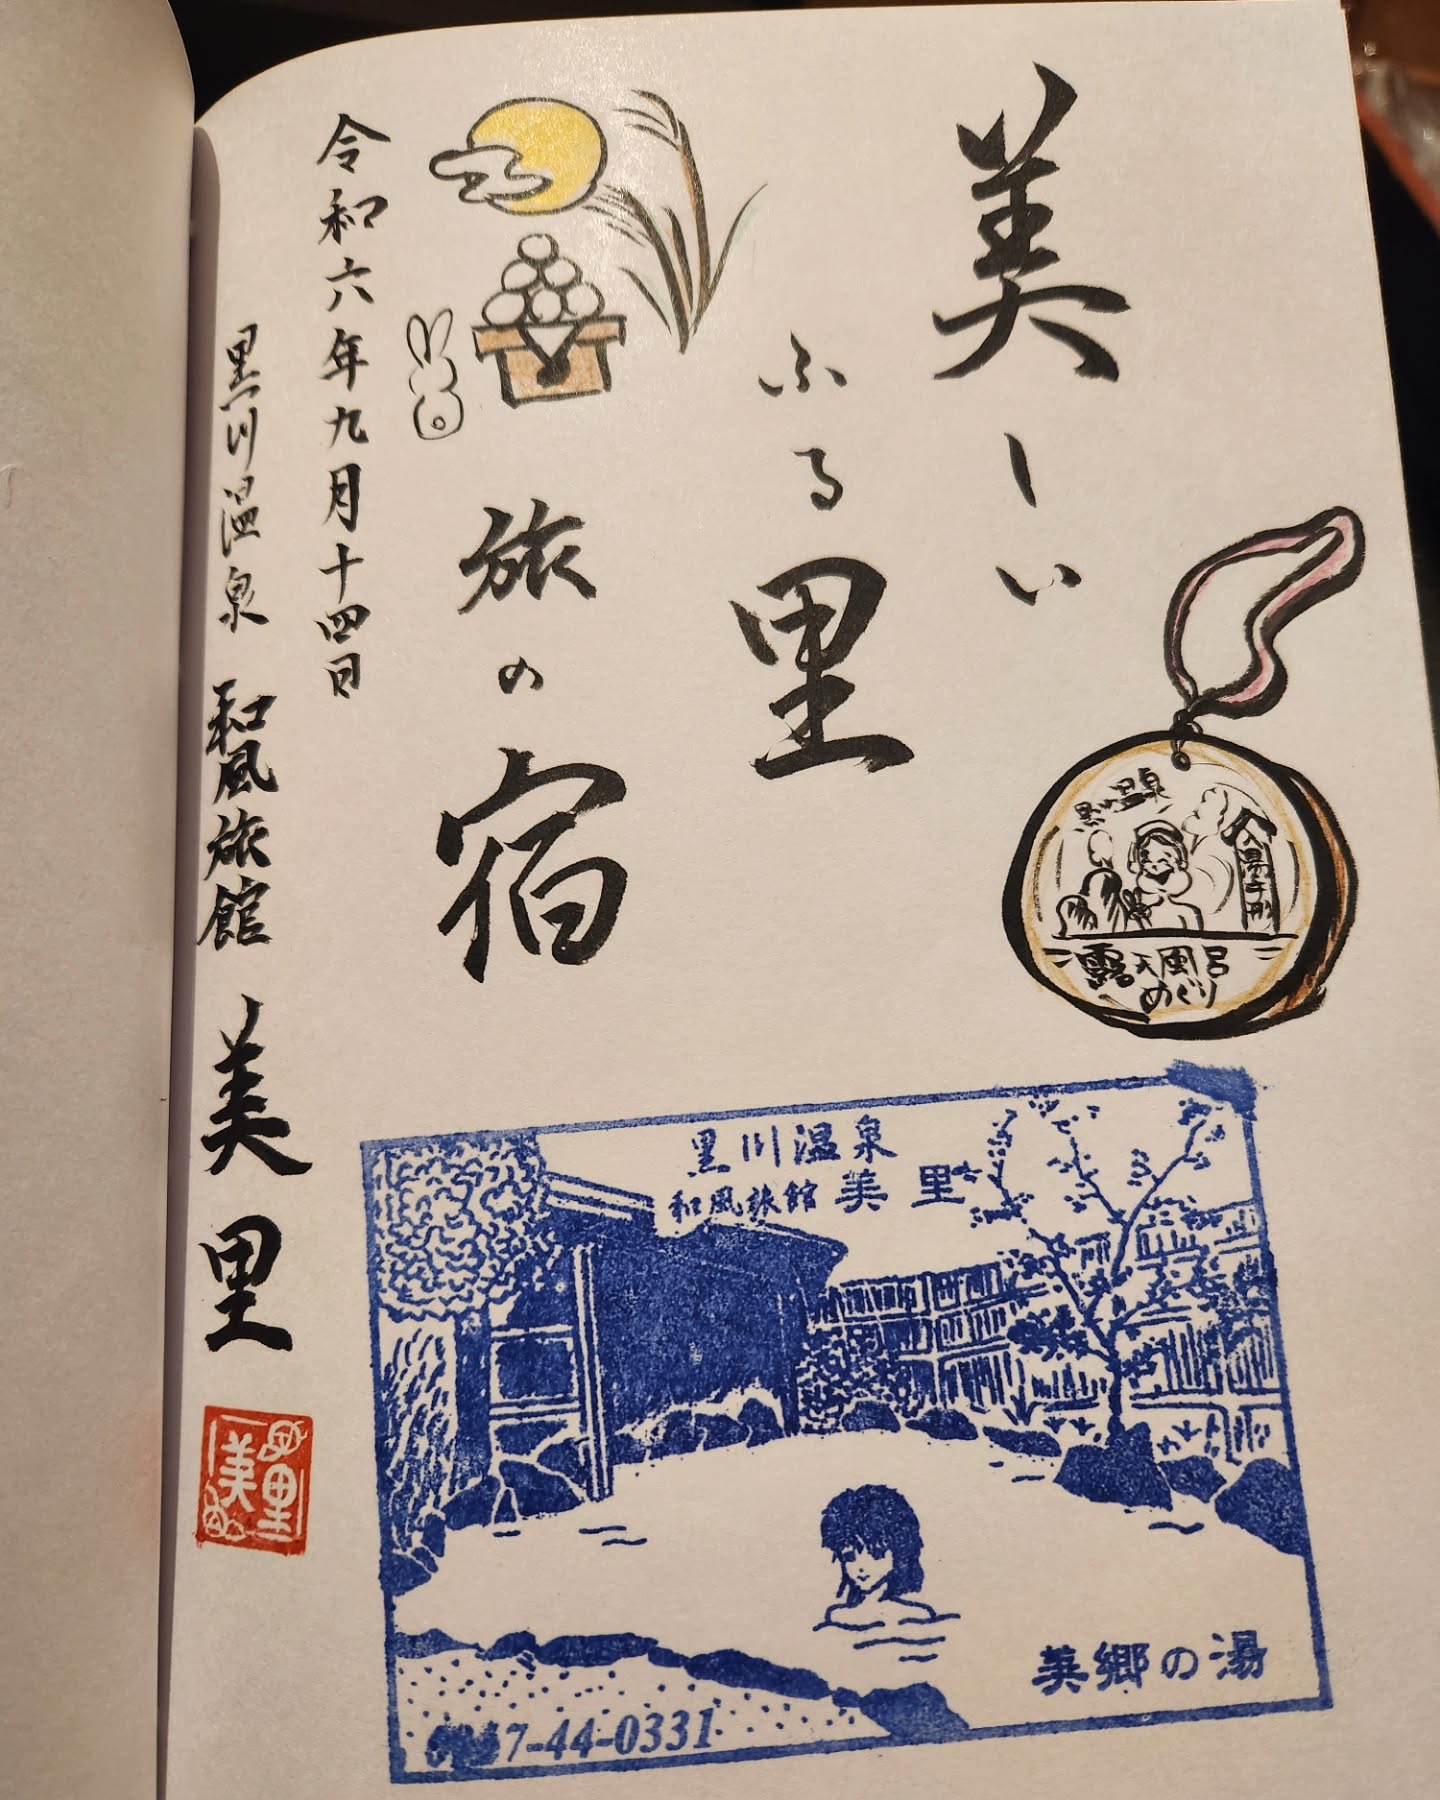 美しい
ふる里
旅の宿
令和六年九月十四日
黒川温泉 和風旅館 美里
美里
黒川温泉
入湯手形
露天風呂
めぐり
黒川温泉
和風旅館 美里
美郷の湯
67-44-0331